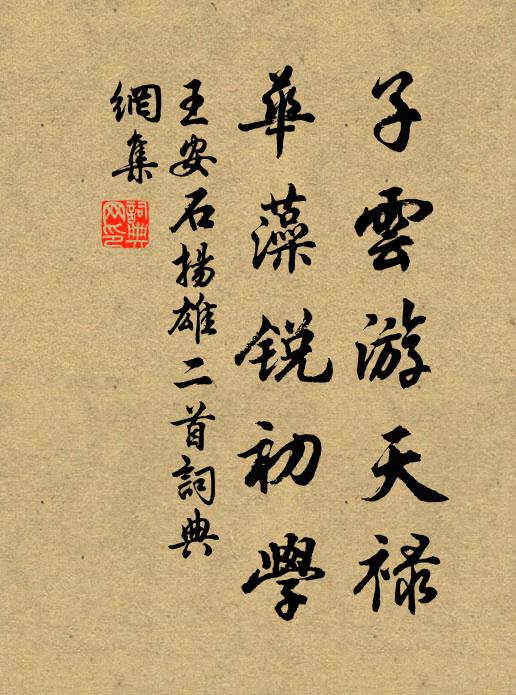 子雲游天禄
華藻銳初學
王安石揚雄二首詞典
網集
詞典網印